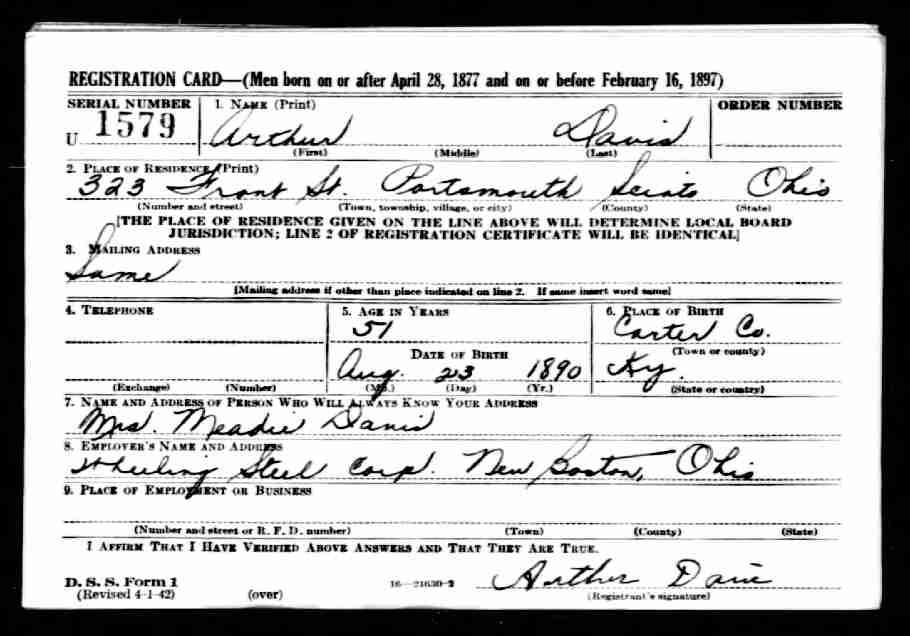 REGISTRATION CARD—(Men born on or after April 28, 1877 and on or before February 16, 1897)
SERIAL NUMBER 1. NAME (Print) ORDER NUMBER
U 1579 Arthur Davis
(First) (Middle) (Last)
2. PLACE OF RESIDENCE (Print)
323 Front St. Portsmouth Scioto Ohio
(Number and street) (Town, township, village, or city) (County) (State)
[THE PLACE OF RESIDENCE GIVEN ON THE LINE ABOVE WILL DETERMINE LOCAL BOARD
JURISDICTION; LINE 2 OF REGISTRATION CERTIFICATE WILL BE IDENTICAL]
3. MAILING ADDRESS
Same
[Mailing address if other than place indicated on line 2. If same insert word same]
4. TELEPHONE 5. AGE IN YEARS 6. PLACE OF BIRTH
51 Carter Co.
DATE OF BIRTH (Town or county)
Aug. 23 1890 Ky.
(Exchange) (Number) (Mo.) (Day) (Yr.) (State or country)
7. NAME AND ADDRESS OF PERSON WHO WILL ALWAYS KNOW YOUR ADDRESS
Mrs. Meadie Davis
8. EMPLOYER'S NAME AND ADDRESS
Wheeling Steel Corp. New Boston, Ohio
9. PLACE OF EMPLOYMENT OR BUSINESS
(Number and street or R. F. D. number) (Town) (County) (State)
I AFFIRM THAT I HAVE VERIFIED ABOVE ANSWERS AND THAT THEY ARE TRUE.
D. S. S. Form 1 16—21630-2 Arther Davis
(Revised 4-1-42) (over) (Registrant's signature)